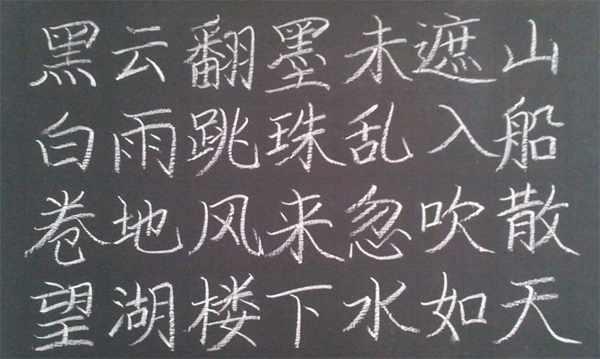 黑云翻墨未遮山
白雨跳珠乱入船
卷地风来忽吹散
望湖楼下水如天